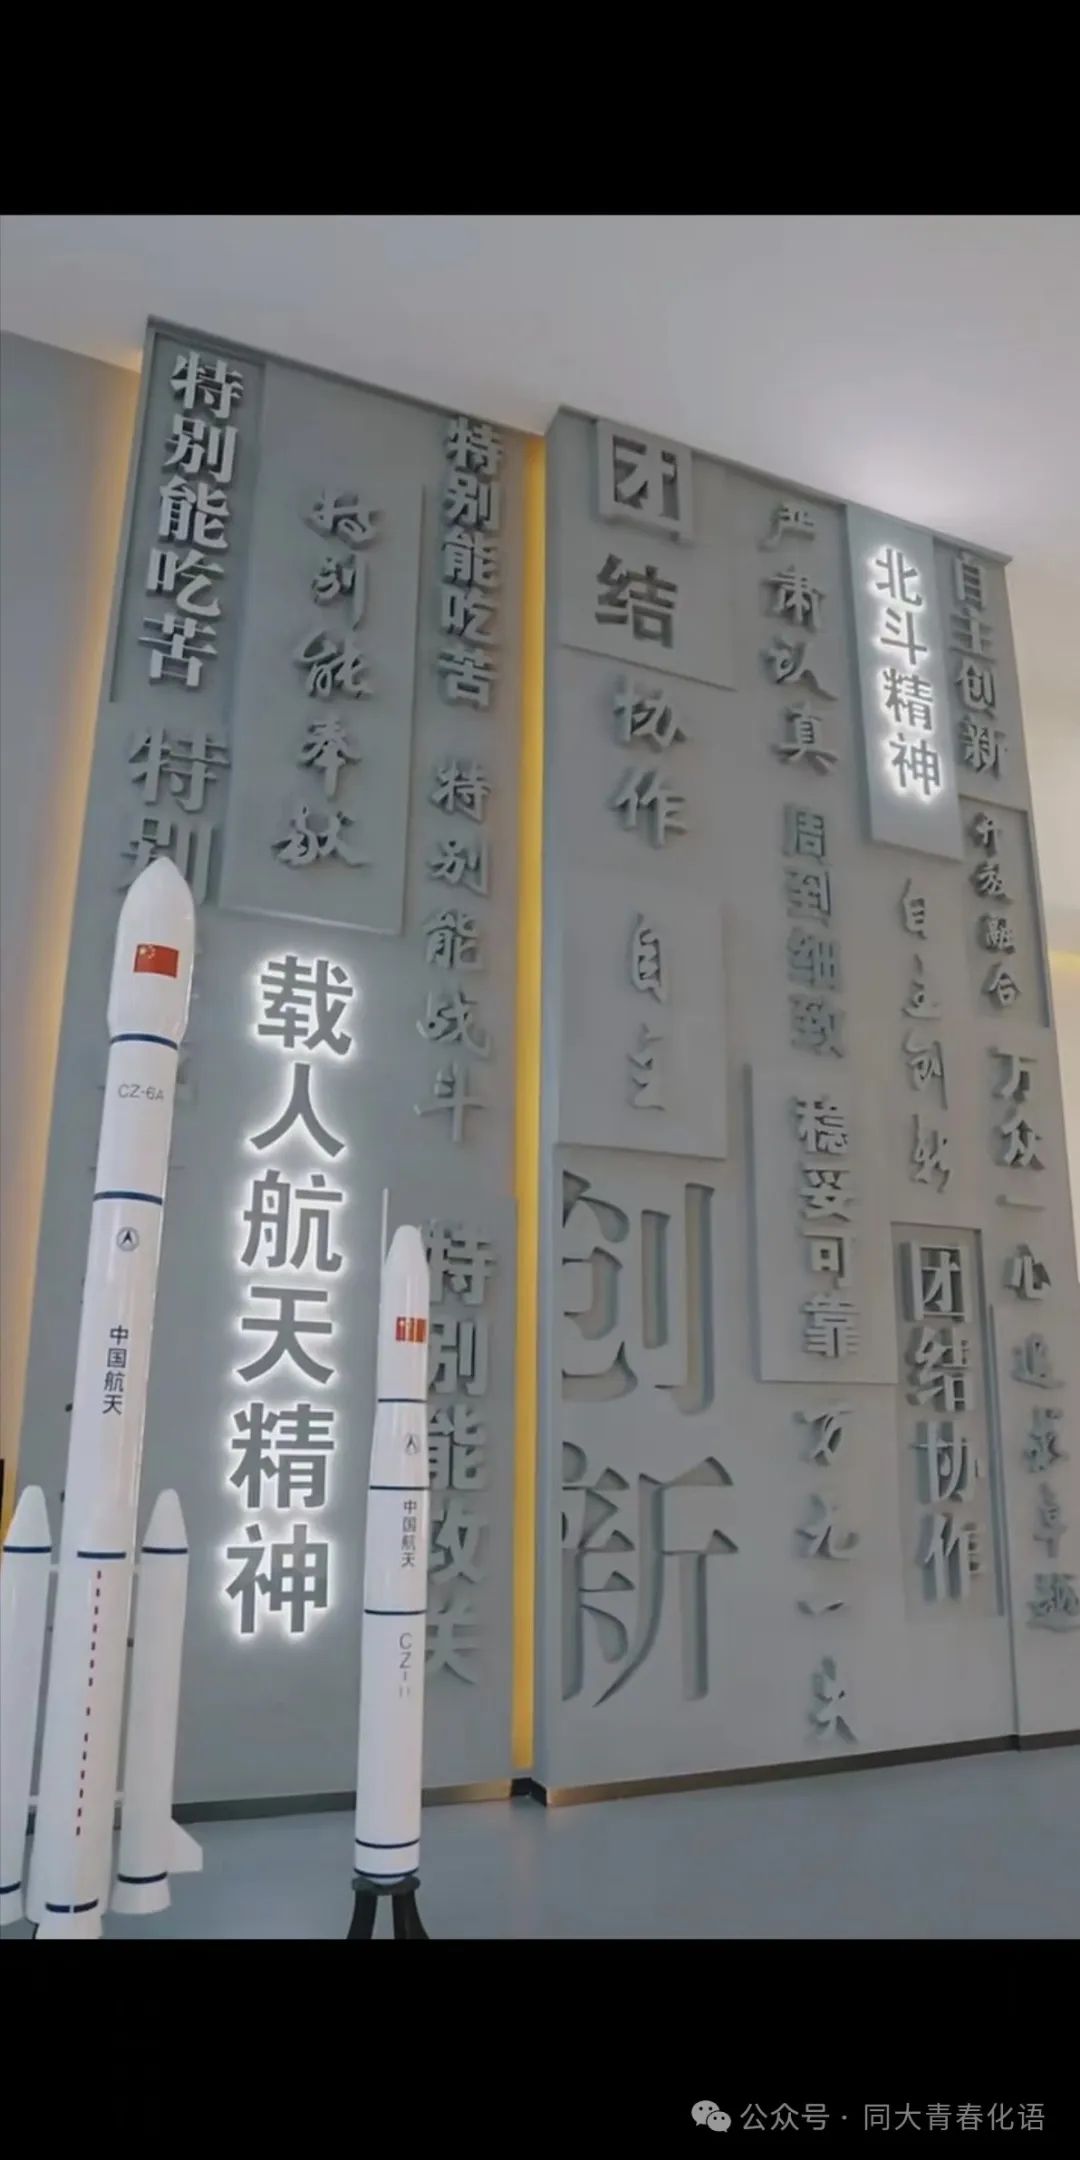 特别能吃苦
特别能奉献
特别能吃苦
特别
特别能战斗
载人航天精神
特别能攻关
CZ-6A
中国航天
中国航天
CZ-11
团结
协作
自主
创新
严肃认真
周到细致
稳妥可靠
万无一失
北斗精神
自主创新
团结协作
自主创新
开放融合
万众一心
追求卓越
公众号 · 同大青春化语